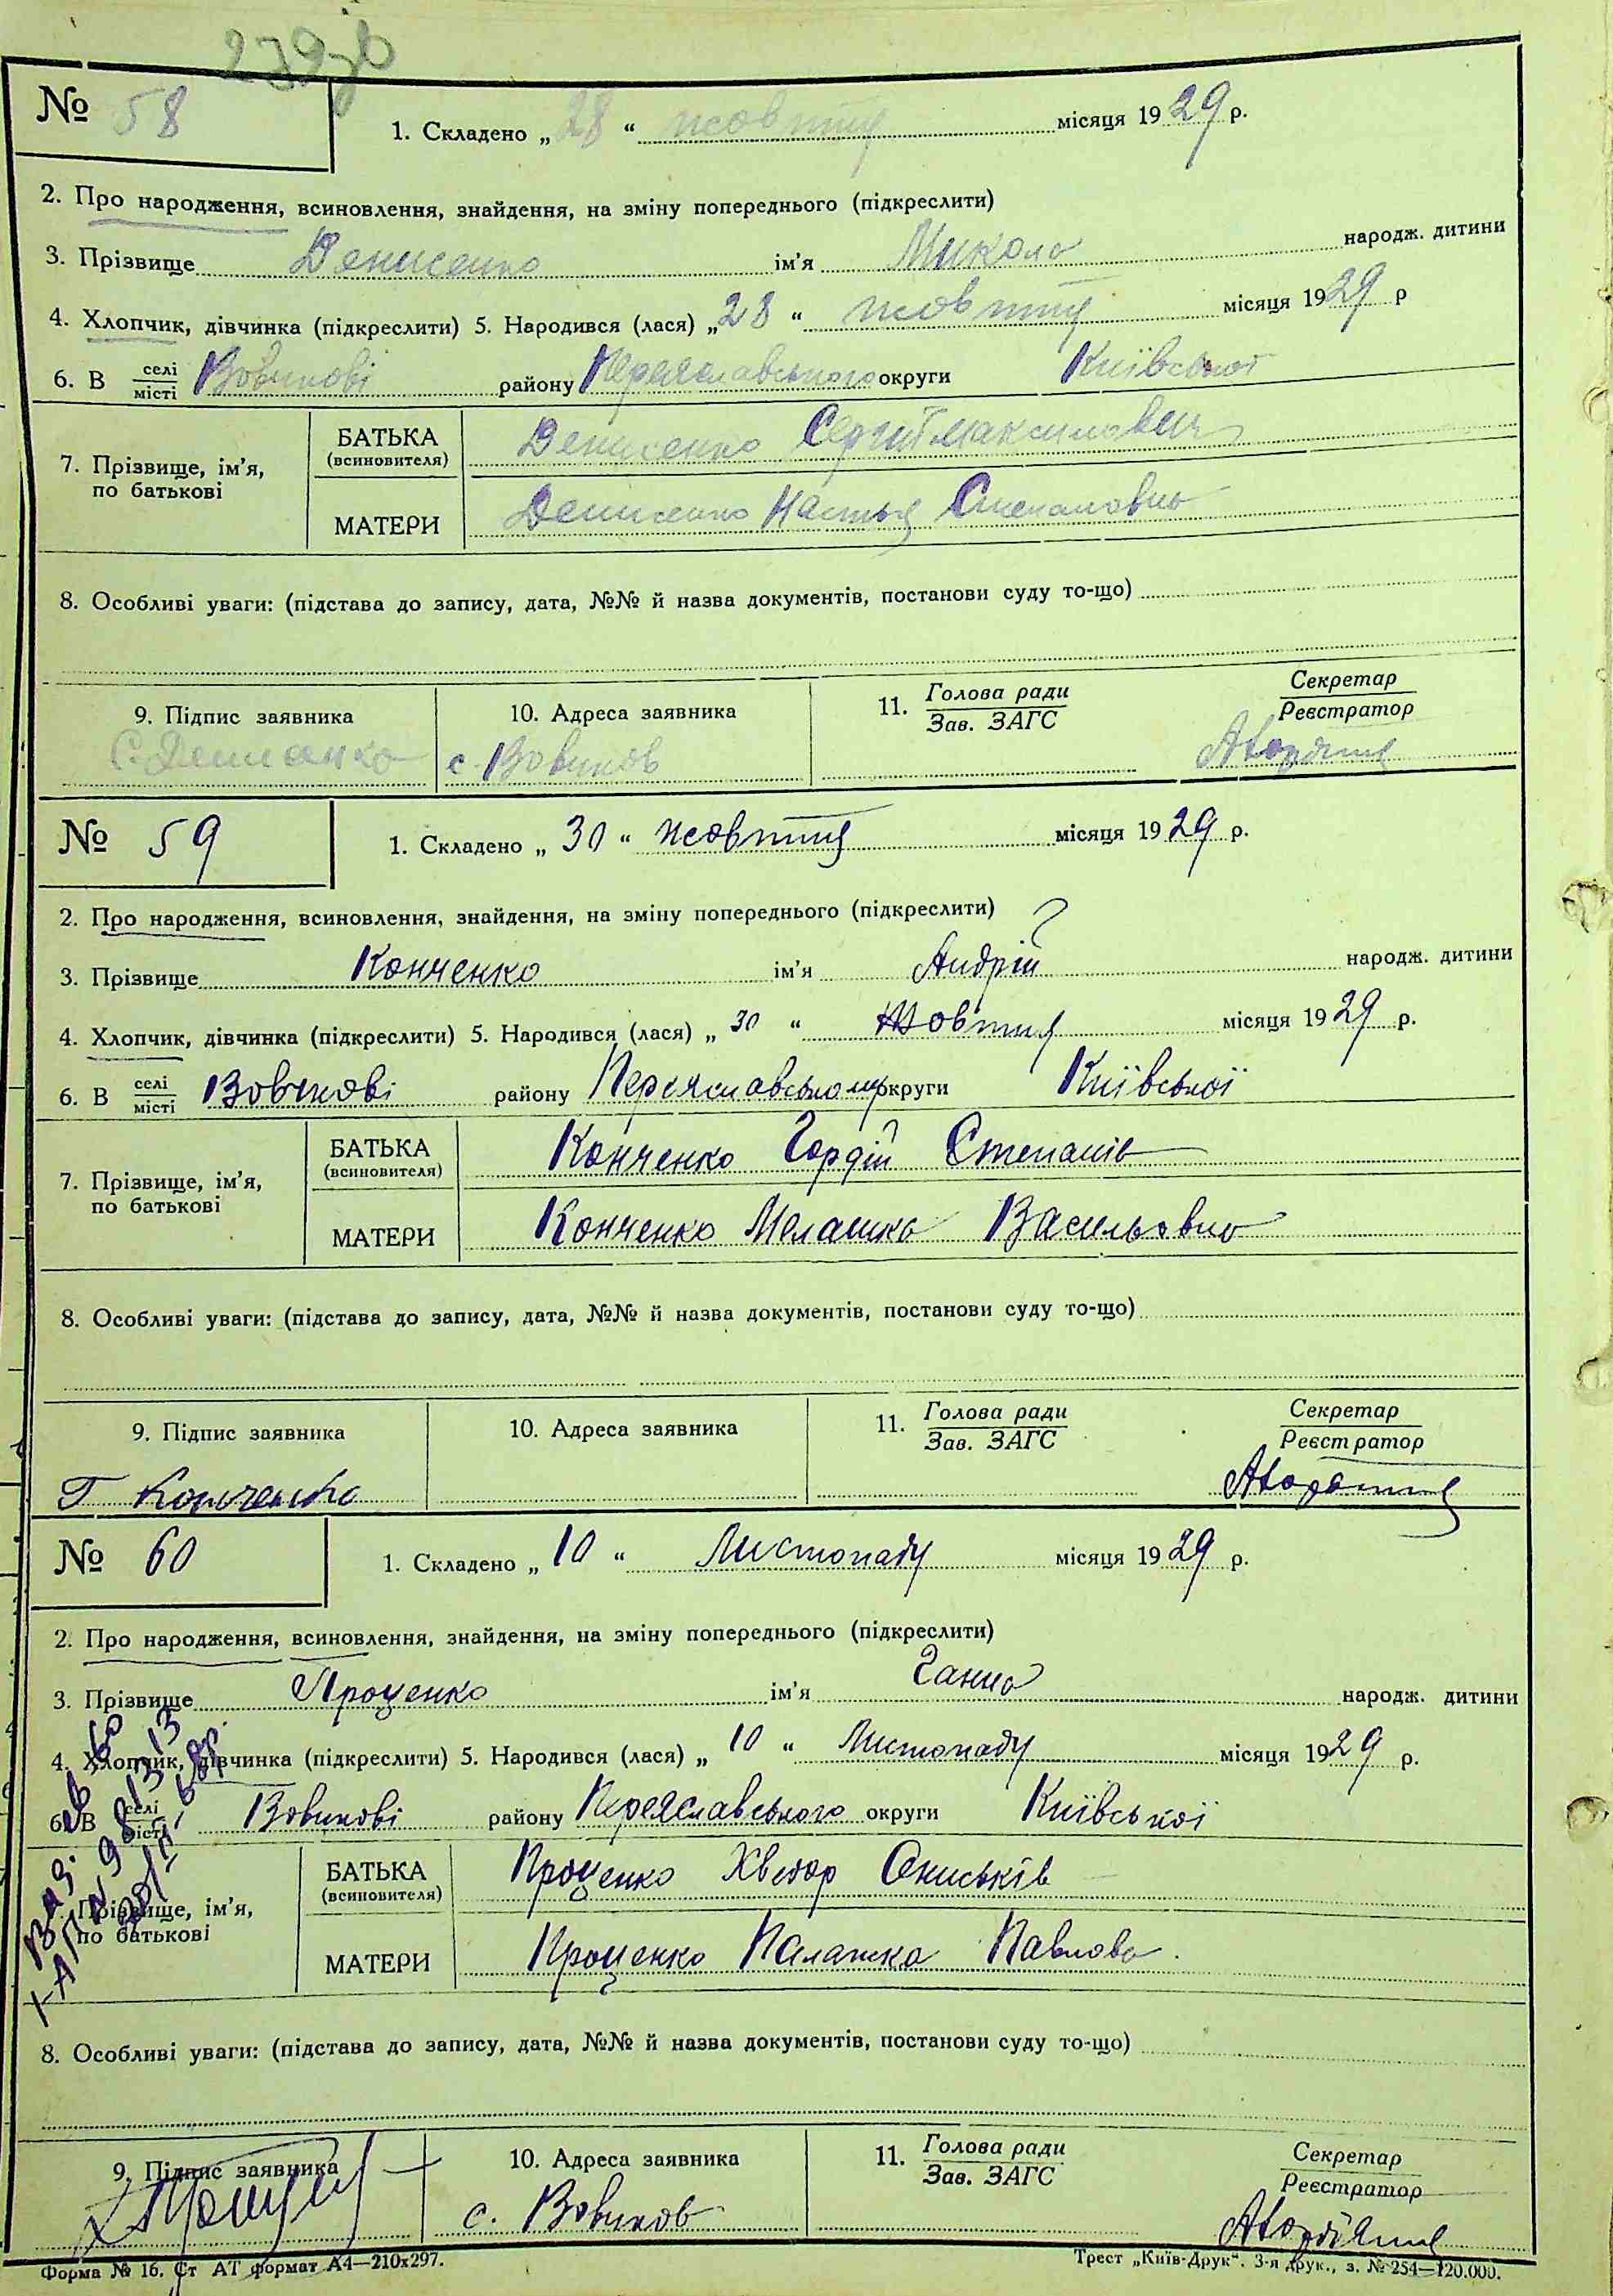 279зв
№ 58
1. Складено „ 28 “ жовтня місяця 1929 р.
2. Про народження, всиновлення, знайдення, на зміну попереднього (підкреслити)
3. Прізвище Денисенко ім'я Микола народж. дитини
4. Хлопчик, дівчинка (підкреслити) 5. Народився (лася) „28 “ жовтня місяця 1929 р
6. В селі/місті Вовчкові району Переяславського округи Київської
7. Прізвище, ім'я, по батькові
БАТЬКА (всиновителя) Денисенко Сергій Максимович
МАТЕРИ Денисенко Настья Степановна
8. Особливі уваги: (підстава до запису, дата, №№ й назва документів, постанови суду то-що)
9. Підпис заявника 10. Адреса заявника 11. Голова ради/Зав. ЗАГС Секретар/Реєстратор
с. Вовчков
№ 59
1. Складено „ 30 “ жовтня місяця 1929 р.
2. Про народження, всиновлення, знайдення, на зміну попереднього (підкреслити)
3. Прізвище Конченко ім'я Андрій народж. дитини
4. Хлопчик, дівчинка (підкреслити) 5. Народився (лася) „ 30 “ жовтня місяця 1929 р.
6. В селі/місті Вовчкові району Переяславського округи Київської
7. Прізвище, ім'я, по батькові
БАТЬКА (всиновителя) Конченко Гордій Степанів
МАТЕРИ Конченко Мелашка Васильовна
8. Особливі уваги: (підстава до запису, дата, №№ й назва документів, постанови суду то-що)
9. Підпис заявника 10. Адреса заявника 11. Голова ради/Зав. ЗАГС Секретар/Реєстратор
Г Конченко
№ 60
1. Складено „ 10 “ Листопаду місяця 1929 р.
2. Про народження, всиновлення, знайдення, на зміну попереднього (підкреслити)
3. Прізвище Проценко ім'я Ганна народж. дитини
4. Хлопчик, дівчинка (підкреслити) 5. Народився (лася) „ 10 “ Листопаду місяця 1929 р.
6. В селі/місті Вовчкові району Переяславського округи Київської
7. Прізвище, ім'я, по батькові
БАТЬКА (всиновителя) Проценко Хведор Ониськів
МАТЕРИ Проценко Палажка Павлова
8. Особливі уваги: (підстава до запису, дата, №№ й назва документів, постанови суду то-що)
9. Підпис заявника 10. Адреса заявника 11. Голова ради/Зав. ЗАГС Секретар/Реєстратор
с. Вовчков
Форма № 16. Ст АТ формат А4—210х297. Трест „Київ-Друк“. 3-я друк., з. № 254—120.000.